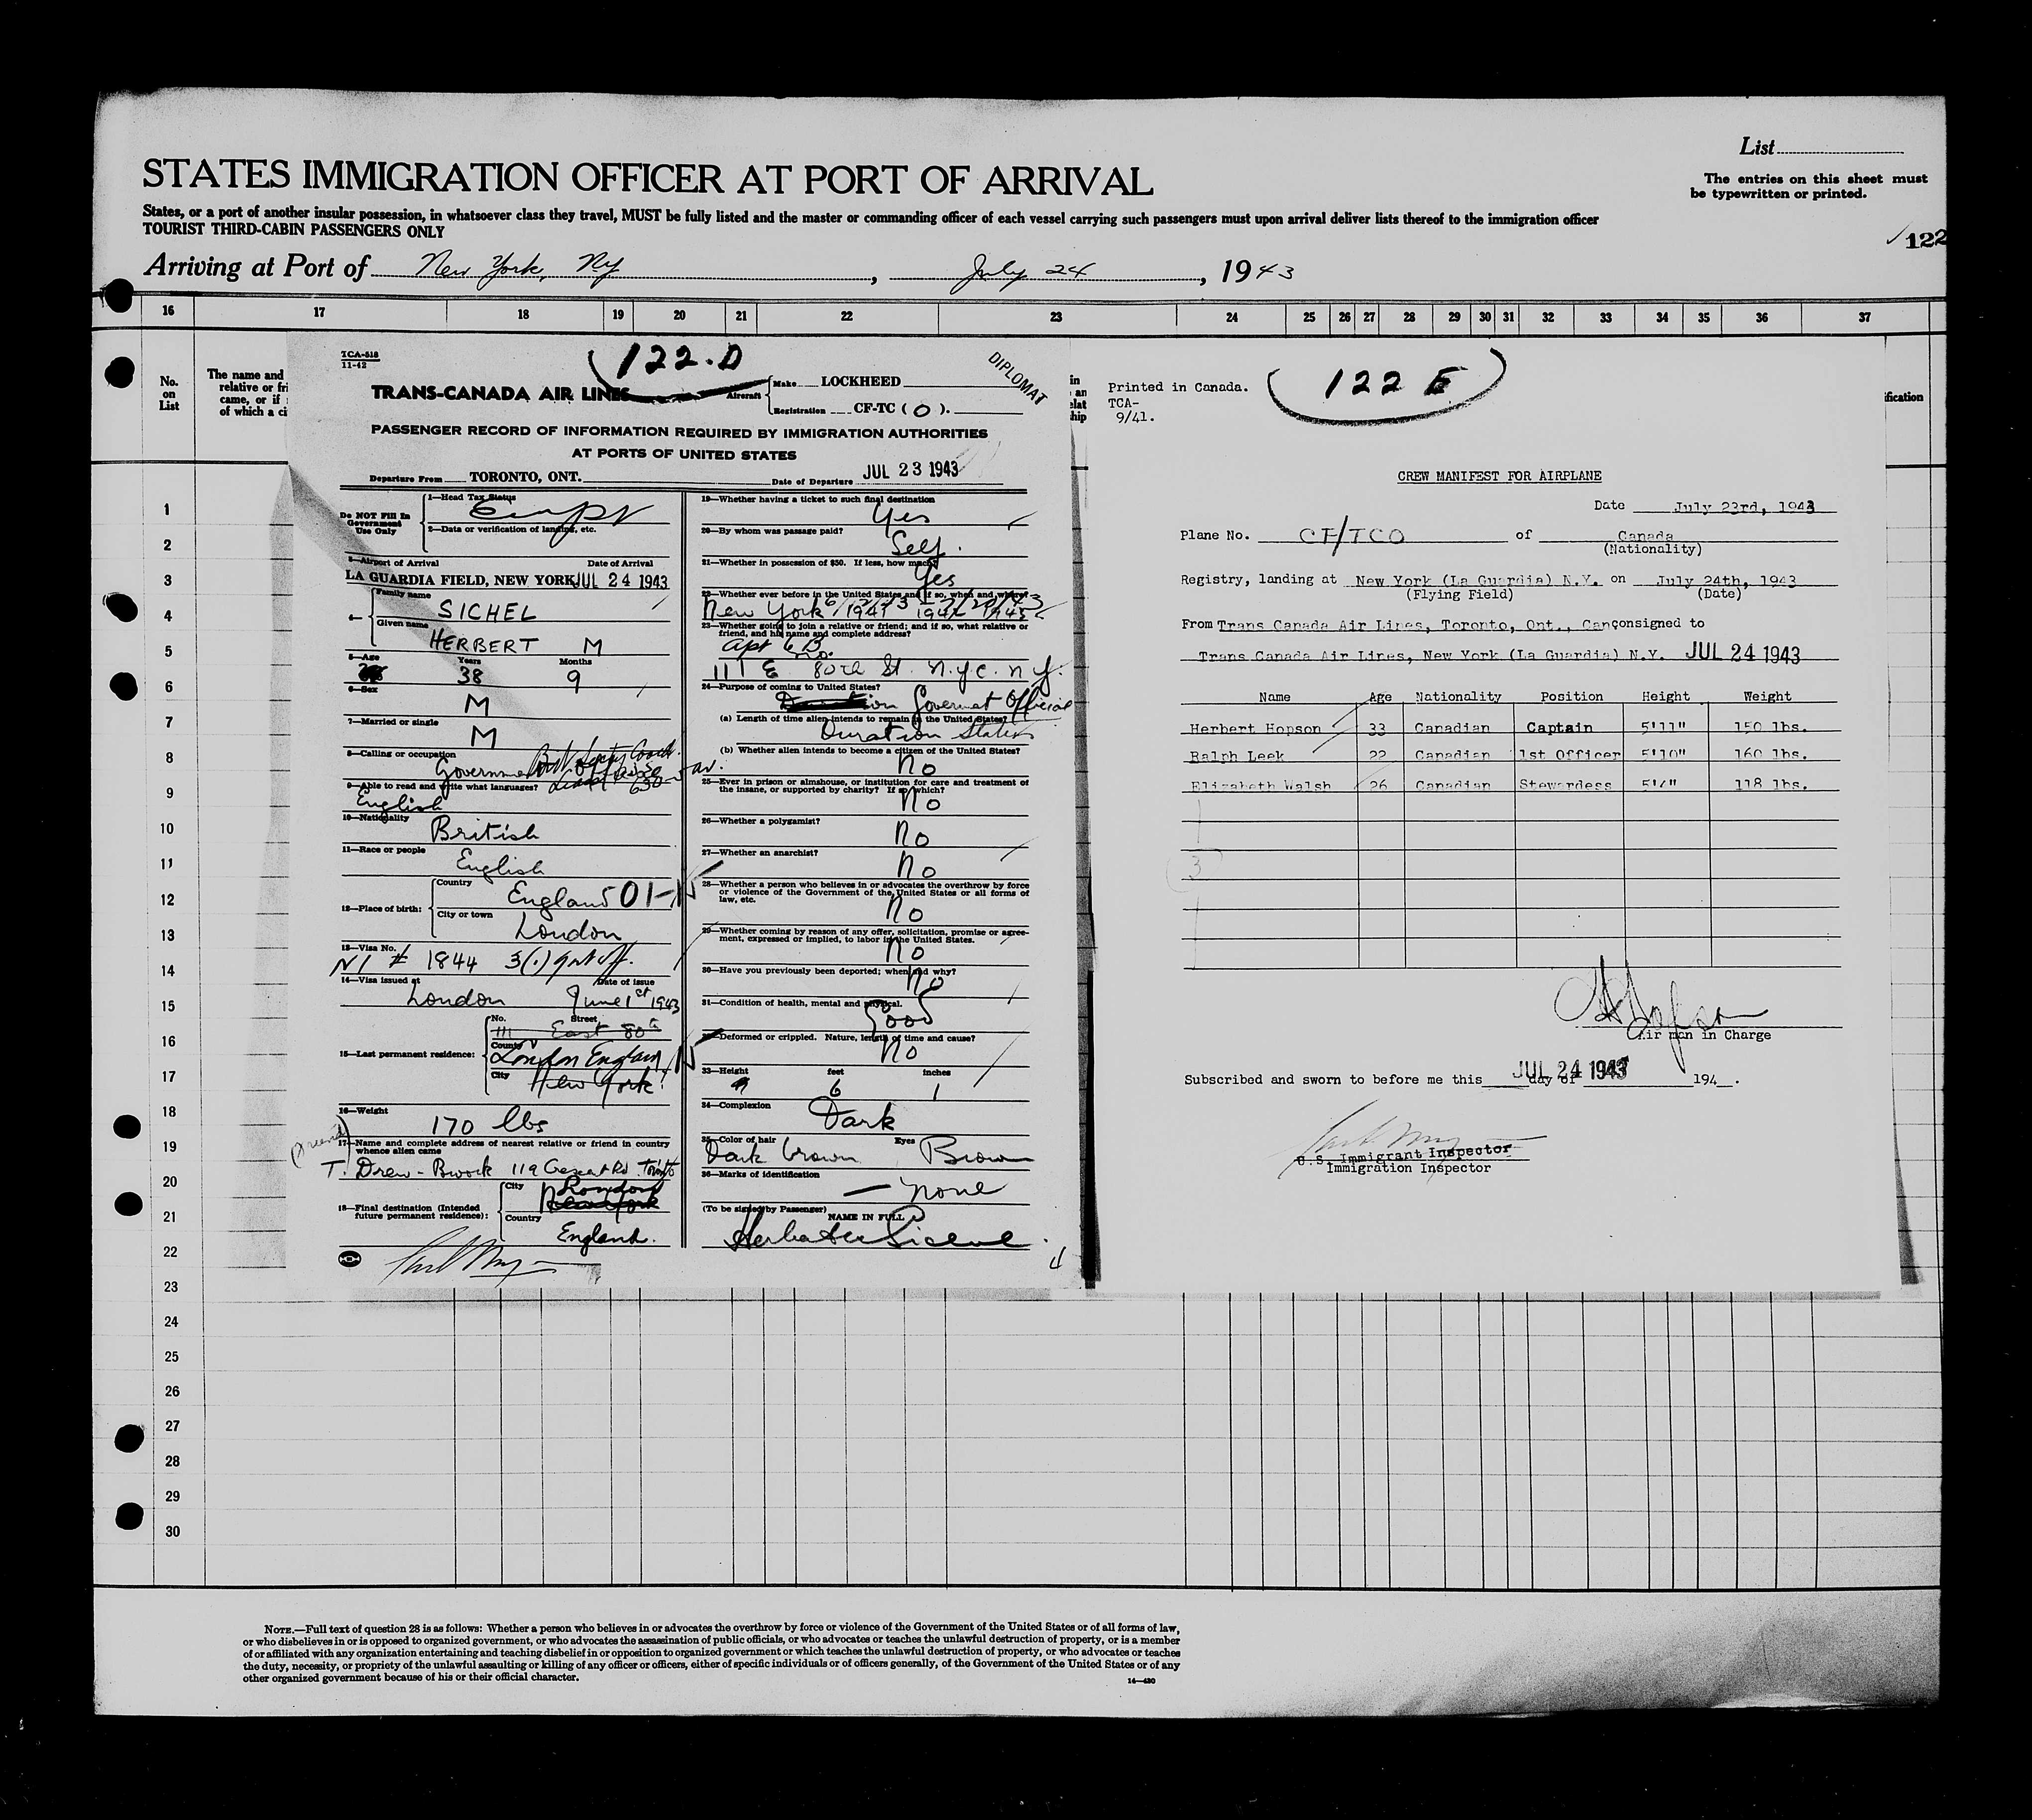 List
STATES IMMIGRATION OFFICER AT PORT OF ARRIVAL
The entries on this sheet must
be typewritten or printed.
States, or a port of another insular possession, in whatsoever class they travel, MUST be fully listed and the master or commanding officer of each vessel carrying such passengers must upon arrival deliver lists thereof to the immigration officer
TOURIST THIRD-CABIN PASSENGERS ONLY
122
Arriving at Port of New York, Ny, July 24, 1943
16 17 18 19 20 21 22 23 24 25 26 27 28 29 30 31 32 33 34 35 36 37
No.
on
List
The name and
relative or fri
came, or if
of which a ci
TCA-518
11-42
122.D
DIPLOMAT
TRANS-CANADA AIR LINES
Aircraft
Make LOCKHEED
Registration CF-TC (O).
PASSENGER RECORD OF INFORMATION REQUIRED BY IMMIGRATION AUTHORITIES
AT PORTS OF UNITED STATES
Departure From TORONTO, ONT. Date of Departure JUL 23 1943
Do NOT Fill In
Government
Use Only
1—Head Tax Status
2—Data or verification of landing, etc.
3—Airport of Arrival Date of Arrival
LA GUARDIA FIELD, NEW YORK JUL 24 1943
4— Family name
SICHEL
Given name
HERBERT M
5—Age Years Months
38 9
6—Sex
M
7—Married or single
M
8—Calling or occupation
Government Official
9—Able to read and write what languages?
English
10—Nationality
British
11—Race or people
English
12—Place of birth: Country
England
City or town
London
13—Visa No.
NI # 1844 3(1)
14—Visa issued at Date of issue
London June 1st 1943
15—Last permanent residence: No. Street
111 East 80th
County
London England
City
New York
16—Weight
170 lbs
17—Name and complete address of nearest relative or friend in country
whence alien came
T. Drew-Brook 119 Crescent Rd. Toronto
18—Final destination (Intended
future permanent residence): City
London
New York
Country
England.
19—Whether having a ticket to such final destination
Yes
20—By whom was passage paid?
Self.
21—Whether in possession of $50. If less, how much?
Yes
22—Whether ever before in the United States and if so, when and where?
New York 1941
23—Whether going to join a relative or friend; and if so, what relative or
friend, and his name and complete address?
Apt 6B
no.
111 E 80th St. N.y.c. N.y.
24—Purpose of coming to United States?
Official
(a) Length of time alien intends to remain in the United States?
Duration
(b) Whether alien intends to become a citizen of the United States?
No
25—Ever in prison or almshouse, or institution for care and treatment of
the insane, or supported by charity? If so, which?
No
26—Whether a polygamist?
No
27—Whether an anarchist?
No
28—Whether a person who believes in or advocates the overthrow by force
or violence of the Government of the United States or all forms of
law, etc.
No
29—Whether coming by reason of any offer, solicitation, promise or agree-
ment, expressed or implied, to labor in the United States.
No
30—Have you previously been deported; when and why?
No
31—Condition of health, mental and physical.
Good
32—Deformed or crippled. Nature, length of time and cause?
No
33—Height feet inches
6 1
34—Complexion
Dark
35—Color of hair Eyes
Dark brown Brown
36—Marks of identification
— none
(To be signed by Passenger)
NAME IN FULL
Printed in Canada.
TCA-
9/41.
122 E
ification
CREW MANIFEST FOR AIRPLANE
Date July 23rd, 1943
Plane No. CF/TCO of Canada
(Nationality)
Registry, landing at New York (La Guardia) N.Y. on July 24th, 1943
(Flying Field) (Date)
From Trans Canada Air Lines, Toronto, Ont., Can consigned to
Trans Canada Air Lines, New York (La Guardia) N.Y. JUL 24 1943
Name Age Nationality Position Height Weight
Herbert Hopson 33 Canadian Captain 5'11" 150 lbs.
Ralph Leek 22 Canadian 1st Officer 5'10" 160 lbs.
Elizabeth Walsh 26 Canadian Stewardess 5'4" 118 lbs.
3
Air man in Charge
Subscribed and sworn to before me this day of JUL 24 1943 194 .
U.S. Immigrant Inspector
Immigration Inspector
1
2
3
4
5
6
7
8
9
10
11
12
13
14
15
16
17
18
19
20
21
22
23
24
25
26
27
28
29
30
NOTE.—Full text of question 28 is as follows: Whether a person who believes in or advocates the overthrow by force or violence of the Government of the United States or of all forms of law,
or who disbelieves in or is opposed to organized government, or who advocates the assassination of public officials, or who advocates or teaches the unlawful destruction of property, or is a member
of or affiliated with any organization entertaining and teaching disbelief in or opposition to organized government or which teaches the unlawful destruction of property, or who advocates or teaches
the duty, necessity, or propriety of the unlawful assaulting or killing of any officer or officers, either of specific individuals or of officers generally, of the Government of the United States or of any
other organized government because of his or their official character.
14—430